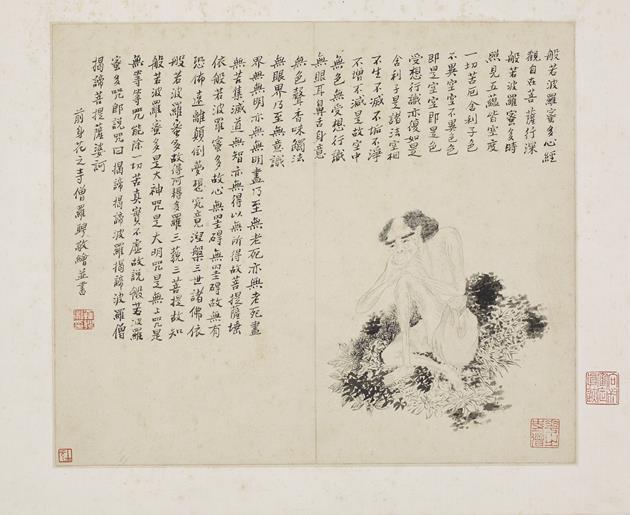 般若波羅蜜多心經
觀自在菩薩行深
般若波羅蜜多時
照見五蘊皆空度
一切苦厄舍利子色
不異空空不異色色
即是空空即是色
受想行識亦復如是
舍利子是諸法空相
不生不滅不垢不淨
不增不減是故空中
無色無受想行識
無眼耳鼻舌身意
無色聲香味觸法
無眼界乃至無意識
界無無明亦無無明盡乃至無老死亦無老死盡
無苦集滅道無智亦無得以無所得故菩提薩埵
依般若波羅蜜多故心無罣礙無罣礙故無有
恐怖遠離顛倒夢想究竟涅槃三世諸佛依
般若波羅蜜多故得阿耨多羅三藐三菩提故知
般若波羅蜜多是大神咒是大明咒是無上咒是
無等等咒能除一切苦真實不虛故說般若波羅
蜜多咒即說咒曰揭諦揭諦波羅揭諦波羅僧
揭諦菩提薩婆訶
前身花之寺僧羅聘敬繪並書